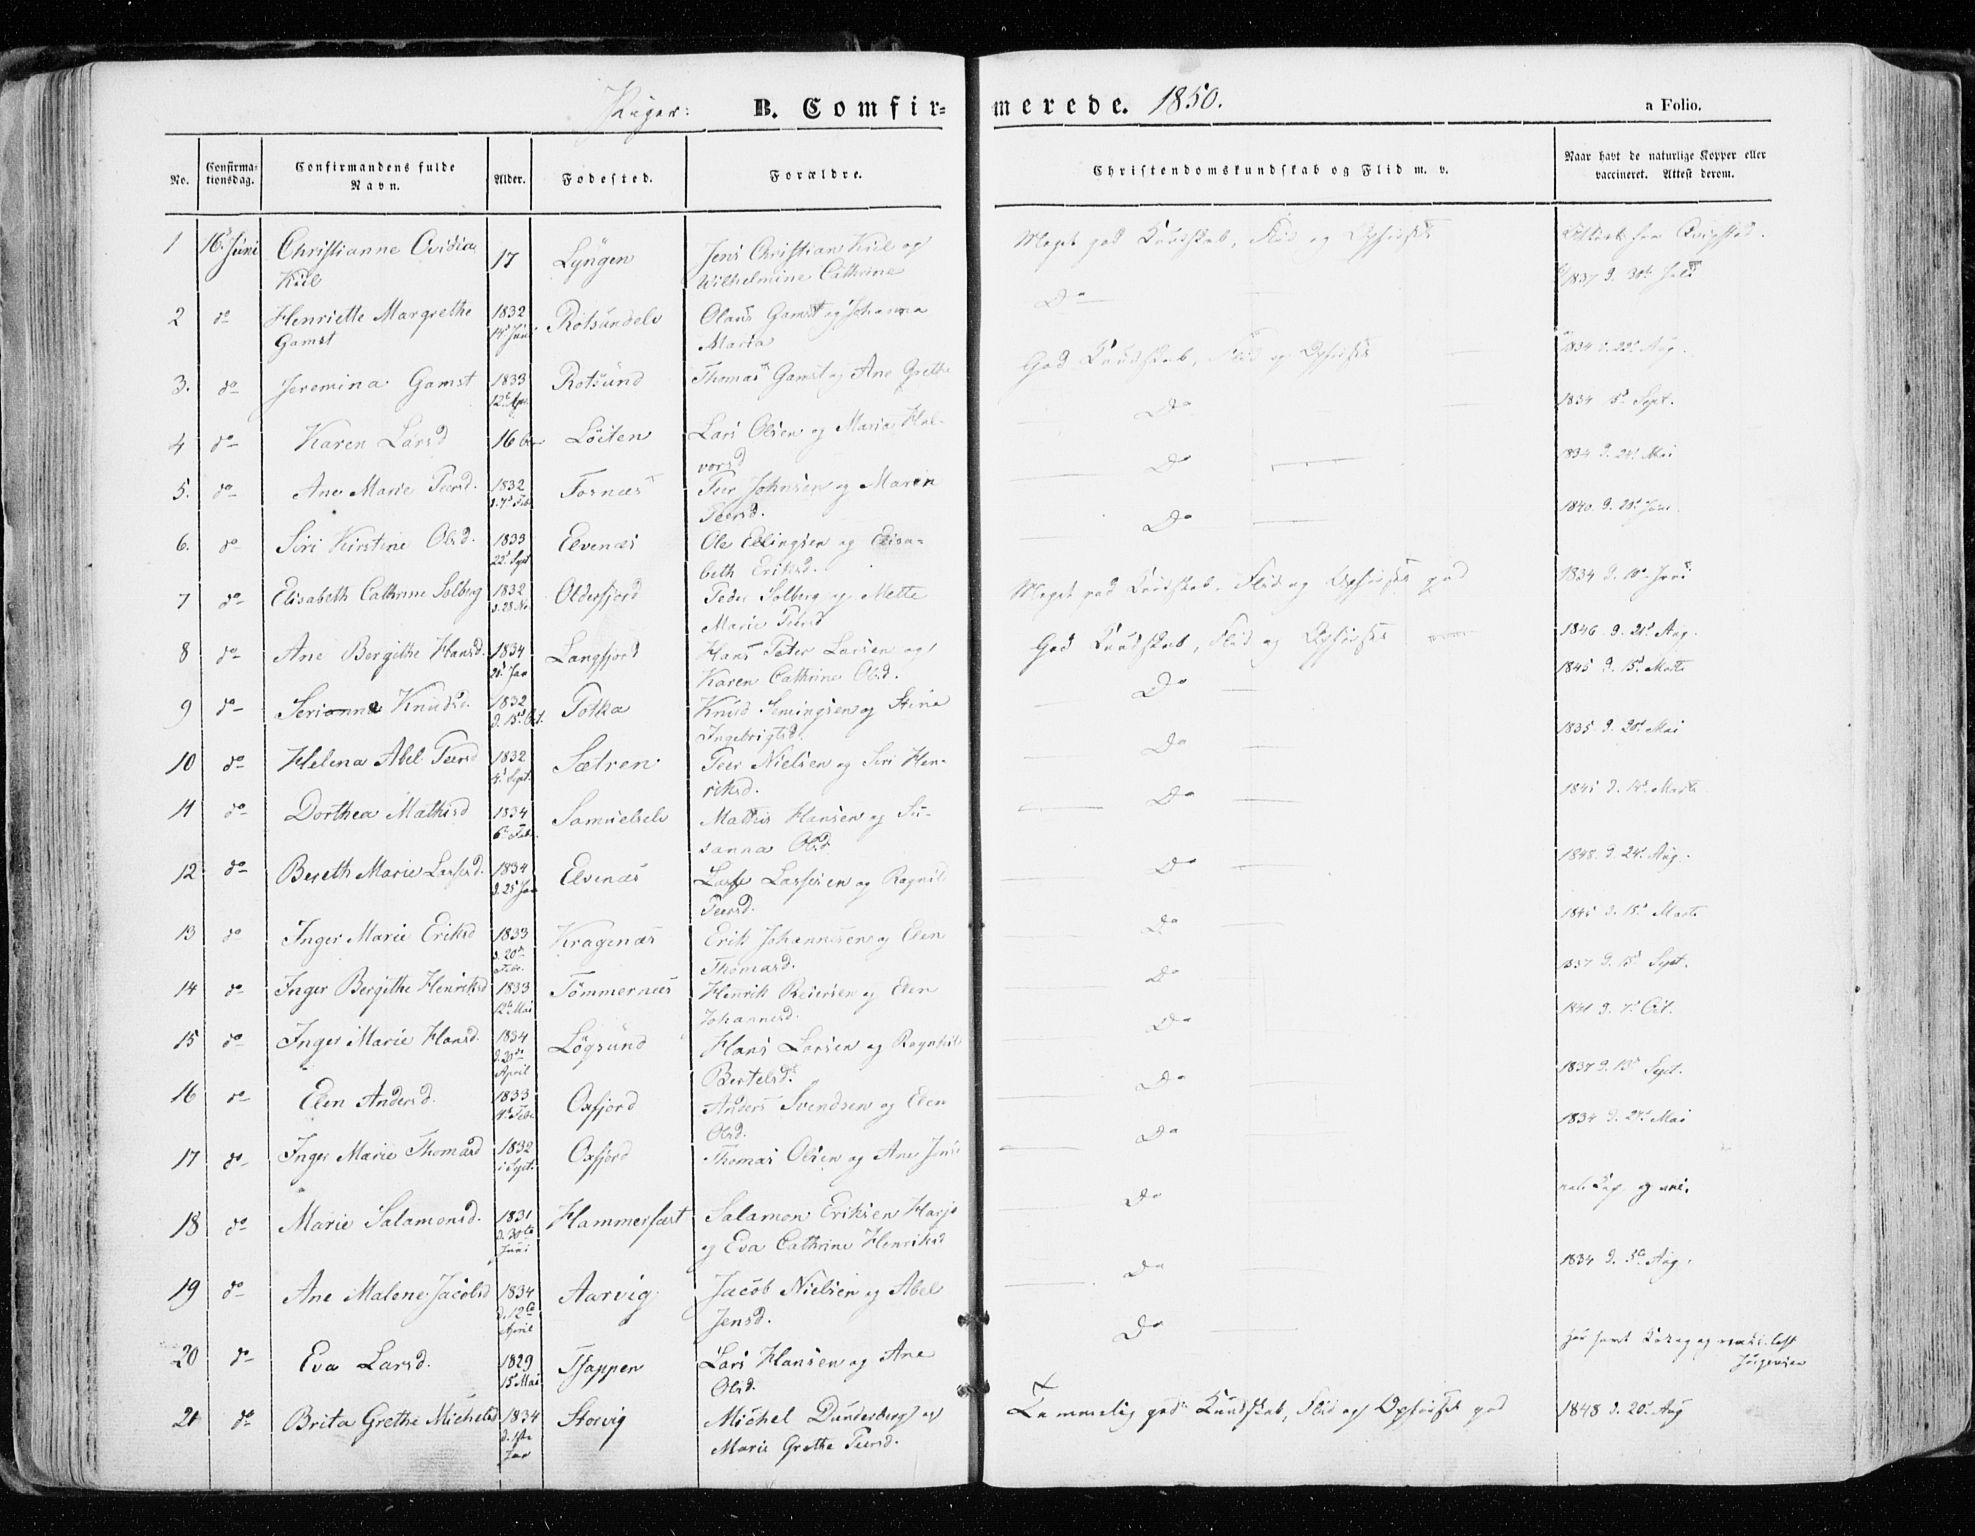 Piger: B. Comfirmerede. 1850. a Folio.
No. Confirmationsdag. Confirmandens fulde Navn. Alder. Fødested. Forældre. Christendomskundskab og Flid m. v. Naar havt de naturlige Kopper eller vaccineret. Attest derom.
1 16. Juni Christianne Ovidia Kiil 17 Lyngen Jens Christian Kiil og Wilhelmine Cathrine Meget god Kundskab, Flid og Opførsel
2 do Henriette Margrethe Gamst 1832 14 Juni Rotsundelv Olaus Gamst og Johanna Maria Do 1837 d. 30te Juli
3. do Jeremina Gamst 1833 12te Apr. Rotsund Thomas Gamst og Ane Grethe God Kundskab, Flid og Opførsel 1834 d. 22d Aug.
4 do Karen Larsd 16 Løiten Lars Olsen og Maria Halvorsd Do 1834 15d Sept.
5. do Ane Marie Peersd. 1832 d. 7d Feb Fosnæs Peer Johnsen og Maren Peersd. Do 1834 d. 24d Mai
6. do Siri Kirstine Olsd. 1833 22d Sept Elvenæs Ole Ellingsen og Elisabeth Eriksd. Do 1840. d. 20d Juni
7 do Elisabeth Cathrine Solberg 1832 d. 28 No Olderfjord Peder Solberg og Mette Marie Peersd Meget god Kundskab, Flid og Opførsel god 1834 d. 10d Juni
8 do Ane Bergithe Hansd. 1834 21d Jan Langfjord Hans Peter Larsen og Karen Cathrine Olsd. God Kundskab, Flid og Opførsel 1846. d. 21d Aug.
9 do Serianna Knudsd. 1832 d. 15d Oct. Potka Knud Semingsen og Stina Ingebrigtsd. Do 1845 d. 15d Marts
10 do Helena Abel Peersd 1832 4d Sept. Sætren Peer Nielsen og Siri Henriksd. Do 1835 d. 20d Mai
11 do Dorthea Mathisd 1834 6d Feb. Samuelselv Mathis Hansen og Susanna Olsd. Do 1845 d. 14d Marts
12 do Bereth Marie Lassesd. 1834 d. 25d Jan Elvenæs Lasse Lassesen og Ragnild Peersd. Do 1848. d. 24d Aug.
13 do Inger Marie Eriksd 1833 d. 20de Febr. Kragenæs Erik Johannesen og Elen Thomasd. Do 1845 d. 15d Marts
14 do Inger Bergithe Henriksd 1833 12te Mai Tømmernæs Henrik Reiersen og Elen Johannesd. Do 1837 d. 15d Sept.
15 do Inger Marie Hansd. 1834 d. 20de April Løgsund Hans Larsen og Ragnhild Bertelsd. Do 1841 d. 7d Oct.
16 do Elen Andersd. 1833 Febr Oxfjord Anders Svendsen og Elen Olsd. Do 1837 d. 13d Sept.
17 do Inger Marie Thomasd 1832 i Sept. Oxfjord Thomas Olsen og Ane Do 1834 d. 24d Mai
18 do Marie Salamonsd. 1831 d. 30te Juni Hammerfæst Salamon Eriksen Harjo og Eva Cathrine Henriksd Do
19 do Ane Malene Jacobsd 1834 d. 12te April Aarvig Jacob Nielsen og Abel Jensd. Do 1834 d. 5d Aug.
20 do Eva Larsd. 1829 15d Mai Tjappen Lars Hansen og Ane Olsd. Do
21 do Brita Grethe Michelsd 1834 d. 1ste Jan Storvig Michel Dunderberg og Marie Grethe Peersd. Temmelig god Kundskab, Flid og Opførsel god 1848 d. 20d Aug